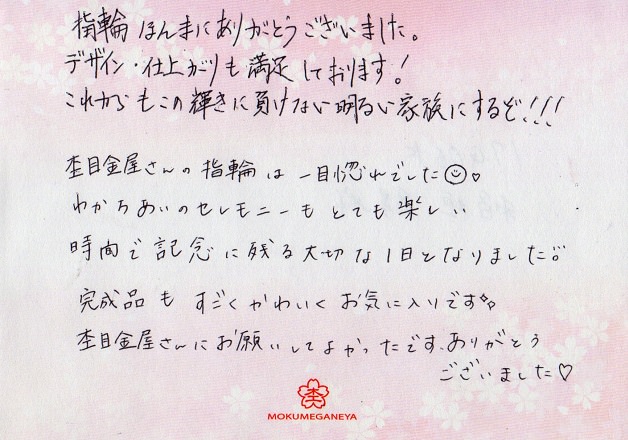 指輪ほんまにありがとうございました。
デザイン・仕上がりも満足しております！
これからもこの輝きに負けない明るい家族にするぞ!!!
杢目金屋さんの指輪は一目惚れでした☺♡
わかちあいのセレモニーもとても楽しい
時間で記念に残る大切な1日となりました!!
完成品もすごくかわいくお気に入りです✧
杢目金屋さんにお願いしてよかったです。ありがとう
ございました♡
杢
MOKUMEGANEYA